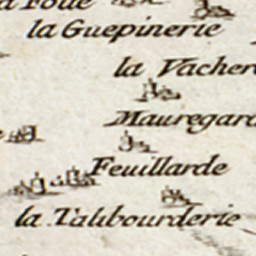 la Guepinerie
la Vacher
Mauregard
Feuillarde
la Talibourderie